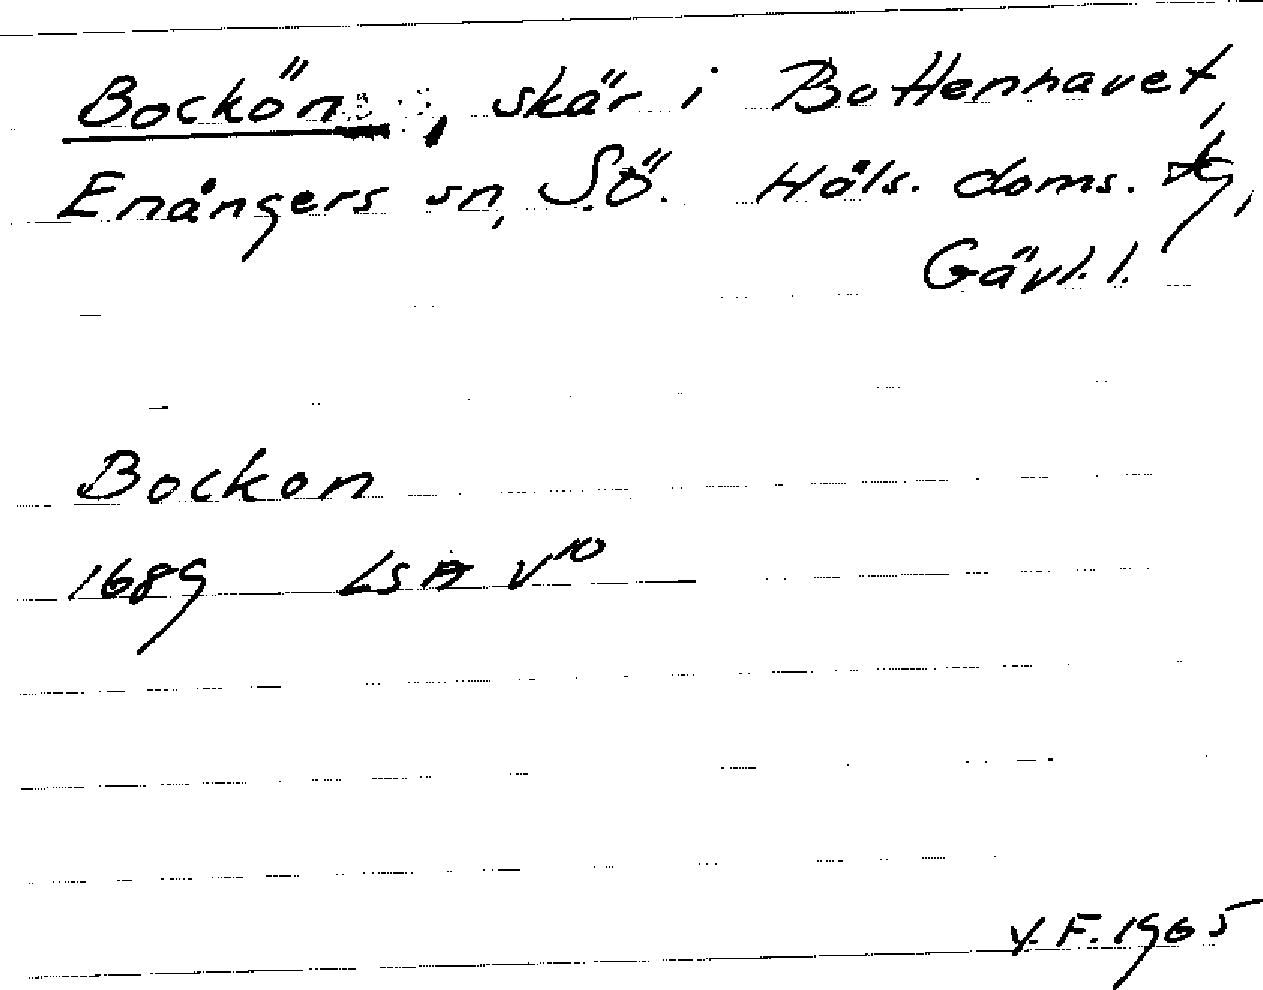 Bockön, skär i Bottenhavet,
Enångers sn, S.Ö. Häls. doms. tg,
Gävl. l.
Bockon
1689 LSA V10
Y. F. 1965